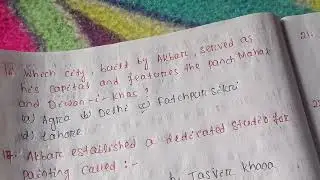 16. Which city built by Akbar, served as
his capital and features the panch Mahal
and Diwan-i-khas?
a) Agra b) Delhi c) Fatehpur Sikri
d) Lahore
17. Akbar established a dedicated studio for
painting called :-
b) Tasveer khana
21.